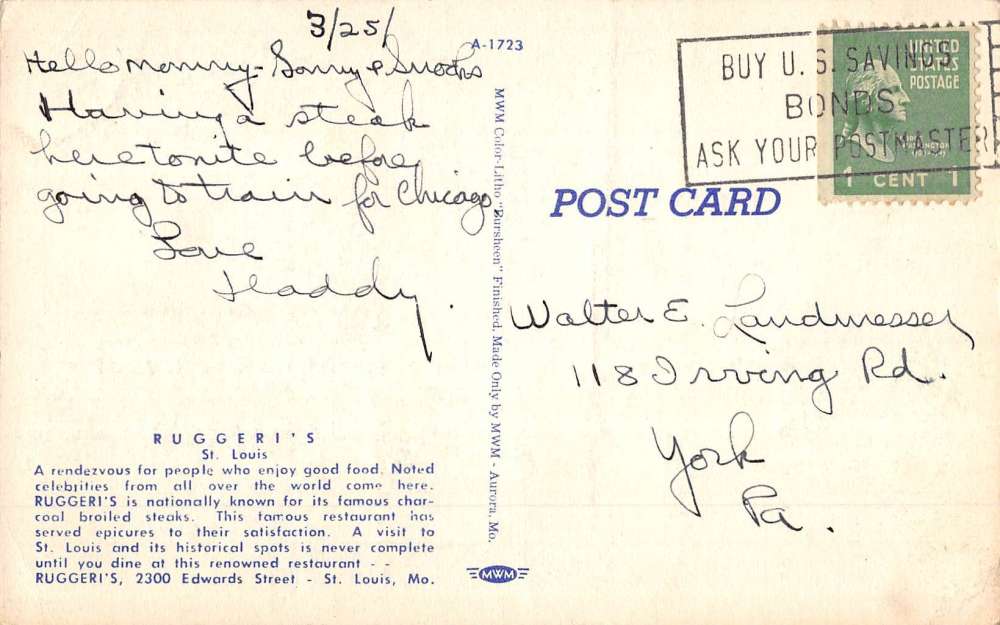 3/25/
Hello Mommy - Sonny & Snooks
Having a steak
here tonite before
going to train for Chicago
Love
Daddy.
A-1723
MWM Color-Litho "Dursheen" Finished. Made Only by MWM - Aurora, Mo.
BUY U. S. SAVINGS
BONDS
ASK YOUR POSTMASTER
UNITED
STATES
POSTAGE
WASHINGTON
1 CENT 1
POST CARD
Walter E. Landmesser
118 Irving Rd.
York
Pa.
RUGGERI'S
St. Louis
A rendezvous for people who enjoy good food. Noted
celebrities from all over the world come here.
RUGGERI'S is nationally known for its famous char-
coal broiled steaks. This famous restaurant has
served epicures to their satisfaction. A visit to
St. Louis and its historical spots is never complete
until you dine at this renowned restaurant - -
RUGGERI'S, 2300 Edwards Street - St. Louis, Mo.
MWM